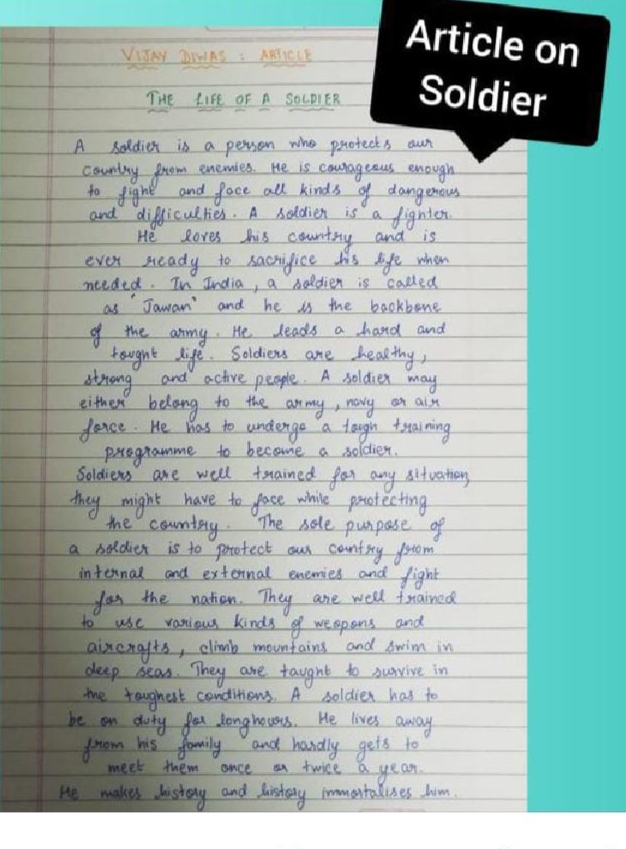 Article on
Soldier
VIJAY DIWAS : ARTICLE
THE LIFE OF A SOLDIER
A soldier is a person who protects our
country from enemies. He is courageous enough
to fight and face all kinds of dangerous
and difficulties. A soldier is a fighter.
He loves his country and is
ever ready to sacrifice his life when
needed. In India, a soldier is called
as "Jawan" and he is the backbone
of the army. He leads a hard and
tought life. Soldiers are healthy,
strong and active people. A soldier may
either belong to the army, navy or air
force. He has to undergo a tough training
programme to become a soldier.
Soldiers are well trained for any situation,
they might have to face while protecting
the country. The sole purpose of
a soldier is to protect our country from
internal and external enemies and fight
for the nation. They are well trained
to use various kinds of weapons and
aircrafts, climb mountains and swim in
deep seas. They are taught to survive in
the toughest conditions. A soldier has to
be on duty for longhours. He lives away
from his family and hardly gets to
meet them once or twice a year.
He makes history and history immortalises him.